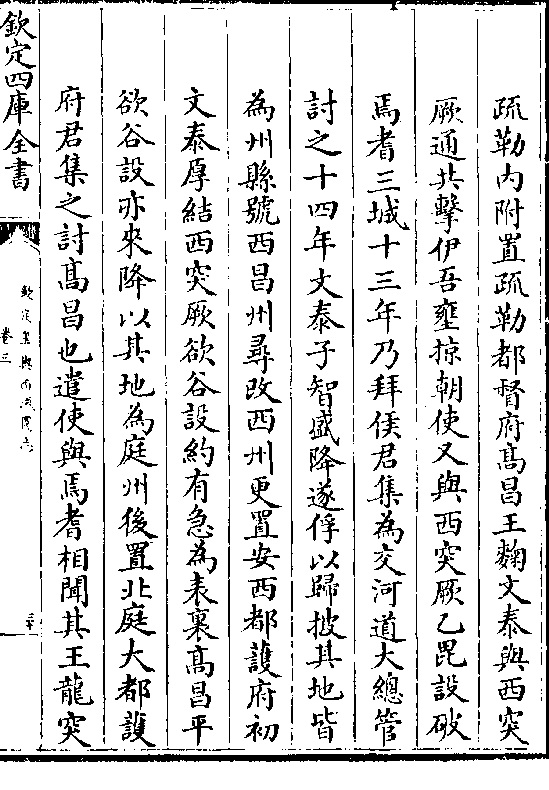 疏勒内附置疏勒都督府髙昌王麴文泰與西突
厥通共擊伊吾壅掠朝使又與西突厥乙毘設破
焉耆三城十三年乃拜侯君集為交河道大總管
討之十四年文泰子智盛降遂俘以歸披其地皆
為州縣號西昌州尋改西州更置安西都護府初
文泰厚結西突厥欲谷設約有急為表裏髙昌平
欲谷設亦來降以其地為庭州後置北庭大都護
府君集之討髙昌也遣使與焉耆相聞其王龍突
欽定四庫全書
欽定皇輿西域圖志
卷三